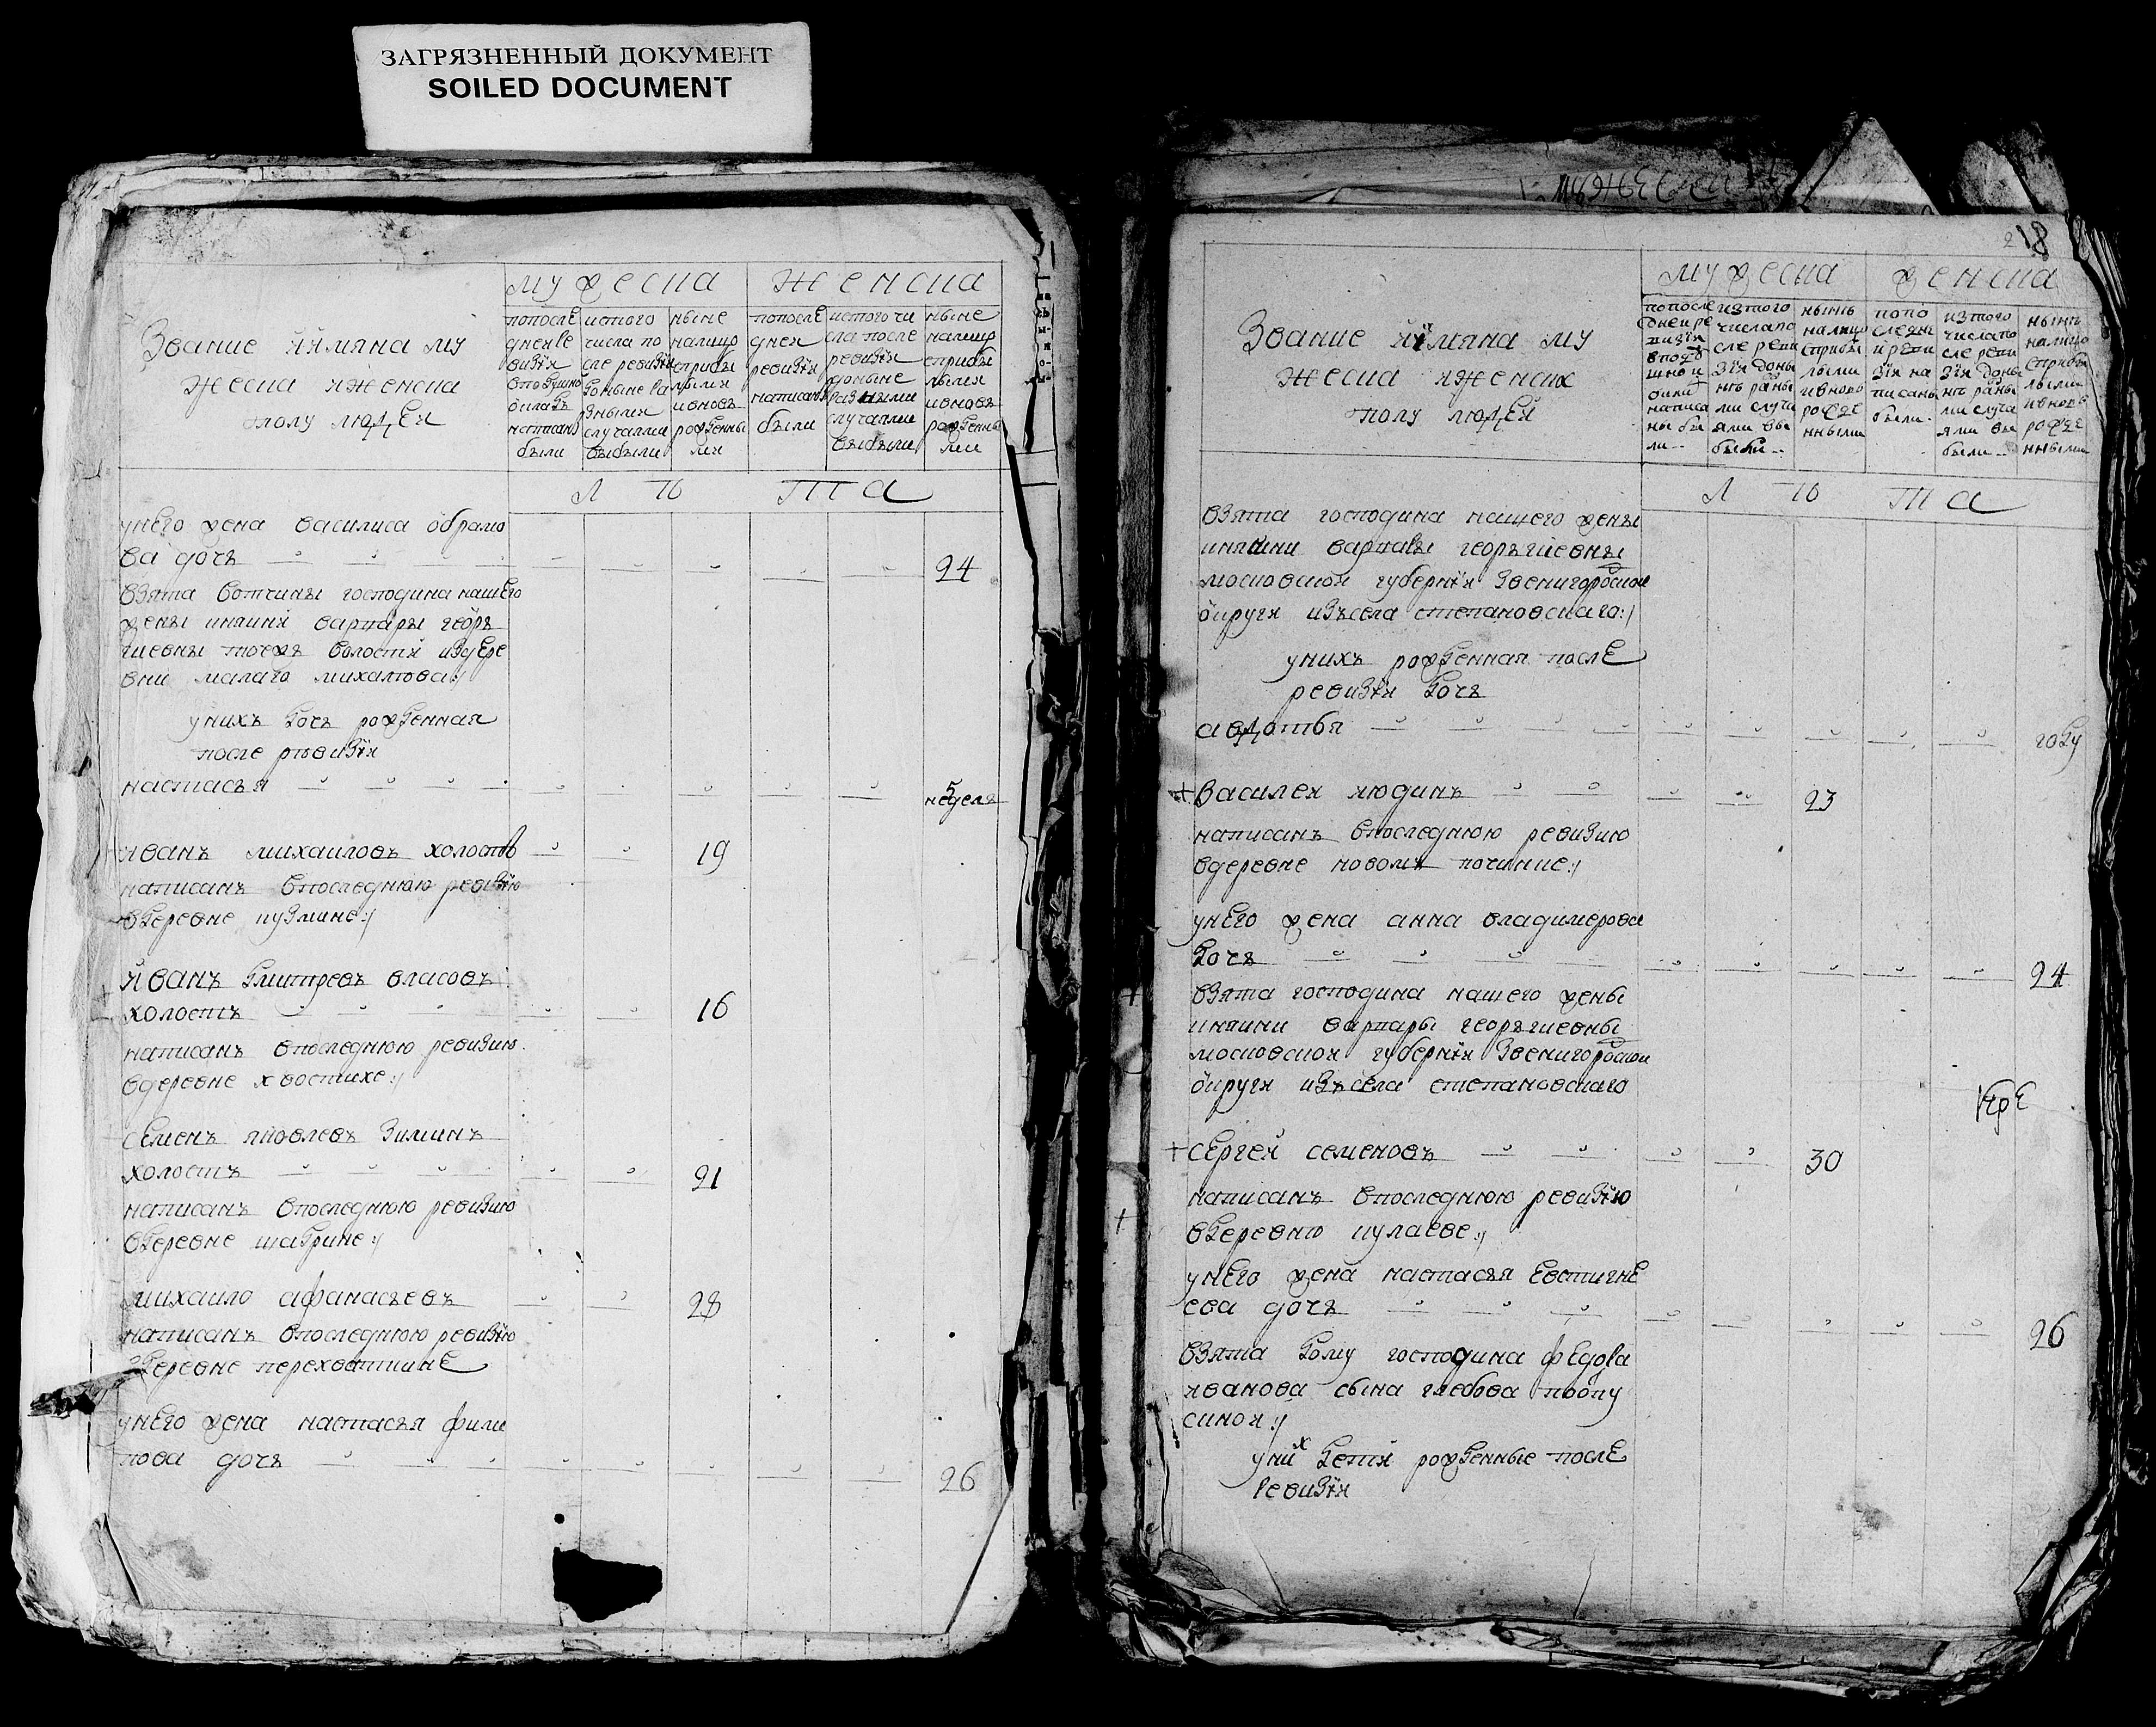 ЗАГРЯЗНЕННЫЙ ДОКУМЕНТ
SOILED DOCUMENT
Звание иимяна му
жеска иженска
полу людей
мужеска
женска
попосле
дней ре
визiи
вподушно
написаны
были
истого
числа по
сле ревизiи
доныне ра
зными
случаями
выбыли
ныне
налицо
сприбы
лыми
ивновь
рожденны
ми
попосле
дней
ревизiи
написаны
были
истого чи
сла после
ревизiи
доныне
разными
случаями
выбыли
ныне
налицо
сприбы
лыми
ивновь
рожденны
ми
лѣта
унего жена василиса абрамо
ва дочь 24
взята вотчины господина нашего
жены княини варвары геор
гиевны тоежъ волости издере
вни малаго михалкова:/
унихъ дочь рожденная
после рѣвизiи
настасья 5
неделя
иванъ михаиловъ холостъ 19
написанъ впоследнюю ревизiю
вдеревне кузмине:/
иванъ дмитревъ власовъ
холостъ 16
написанъ впоследнюю ревизию
вдеревне хвостихе:/
семенъ яковлевъ зиминъ
холостъ 21
написанъ впоследнюю ревизию
вдеревне шадрине:/
михаило афанасьевъ 28
написанъ впоследнюю ревизiю
вдеревне перехваткине
унего жена настасья фили
пова дочь 26
18
Звание иiмяна му
жеска иженск
полу людей
мужеска
женска
попосле
дней ре
визiи
написа
ны бы
ли
изтого
числапо
сле реви
зiи доны
нѣ разны
ми случа
ями вы
были
нынѣ
налицо
сприбы
лыми
ивновь
рожде
нными
попо
следне
й реви
зiи на
писаны
были
изтого
числапо
сле реви
зiи доны
нѣ разны
ми случа
ями вы
были
нынѣ
налицо
сприбы
лыми
ивновь
рожде
нными
лѣта
взята господина нашего жены
княини варвары георъгiевны
московской губернiи звенигородской
округи изъсела степановскаго:/
унихъ рожденная после
ревизiи дочь
авдотья году
василей июдинъ 23
написанъ впоследнюю ревизию
вдеревне новомъ починке:/
унего жена анна владимерова
дочь 24
взята господина нашего жены
княини варвары георъгиевны
московской губернiи звенигородской
округи изъсела степановскаго
сергей семеновъ 30
написанъ впоследнюю ревизiю
вдеревню кулаеве:/
унего жена настасья евстигне
ева дочь 26
взята дому господина федора
иванова сына глебова поопу
скной:/
уних дети рожденные после
ревизiи